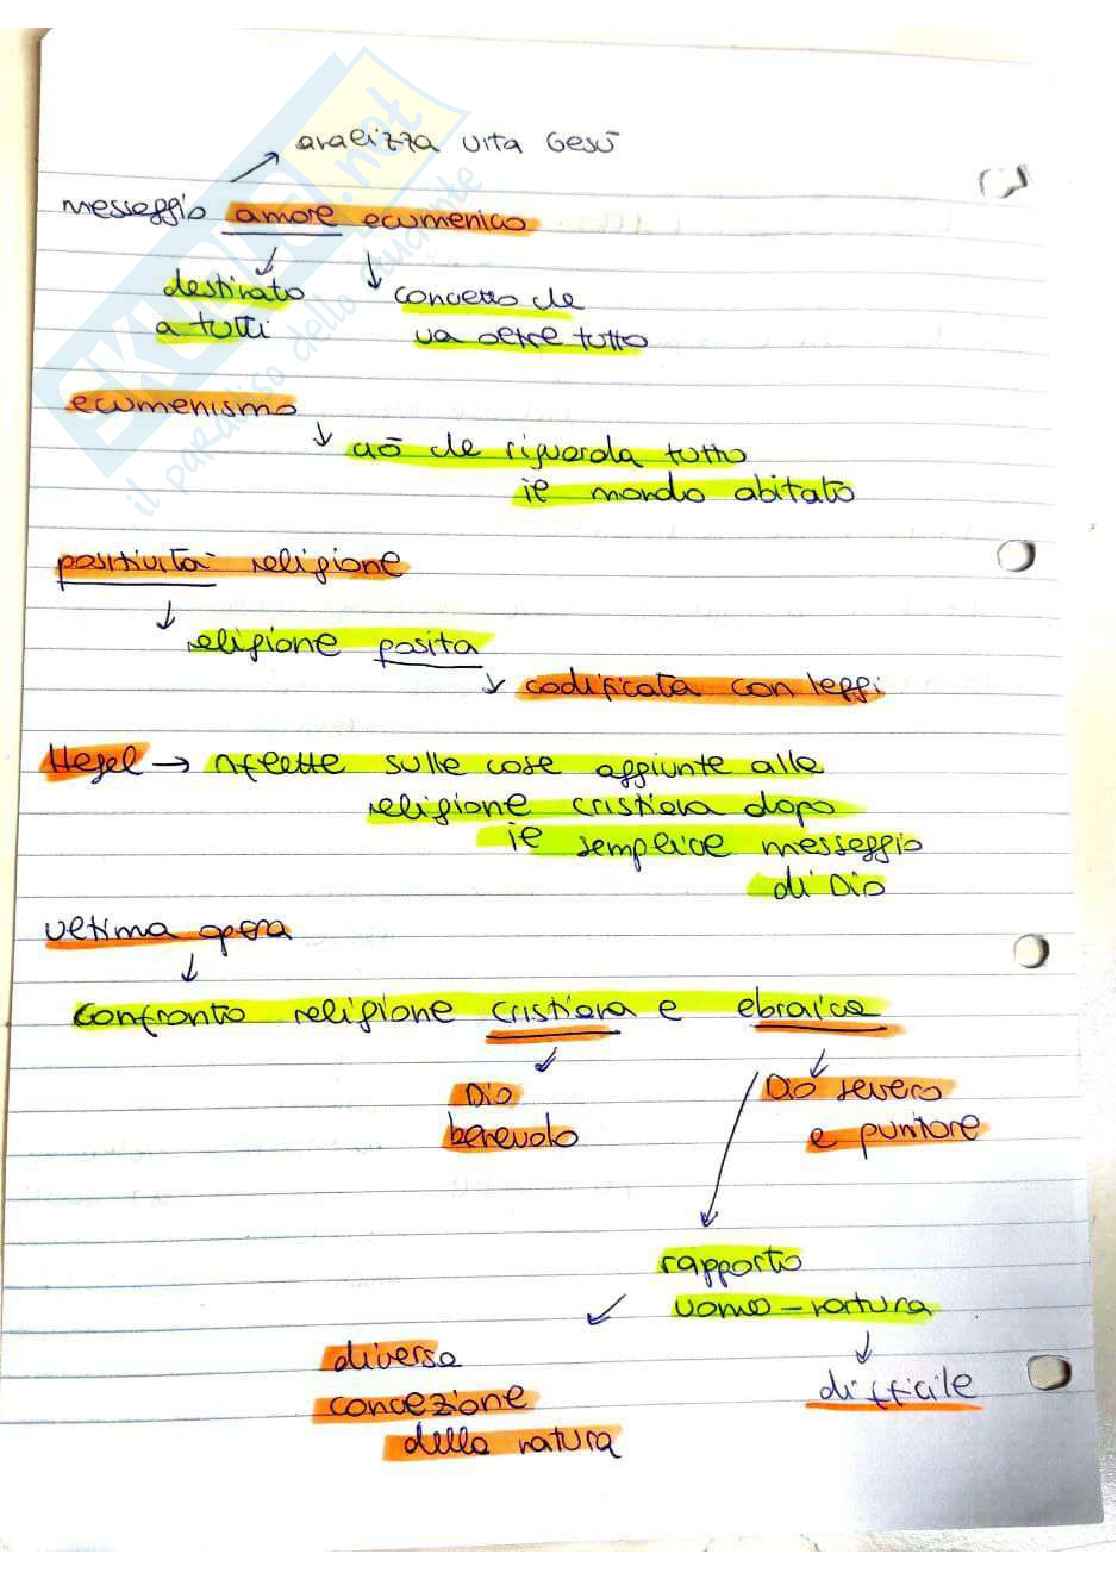 analizza vita Gesù
messaggio amore ecumenico
destinato
a tutti
concetto che
va oltre tutto
ecumenismo
ciò che riguarda tutto
il mondo abitato
positività religione
religione posita
codificata con leggi
Hegel → riflette sulle cose aggiunte alla
religione cristiana dopo
il semplice messaggio
di Dio
ultima opera
confronto religione cristiana e ebraica
Dio
benevolo
Dio severo
e punitore
rapporto
uomo-natura
diversa
concezione
della natura
difficile
SKUOLA.net
il paradiso dello studente